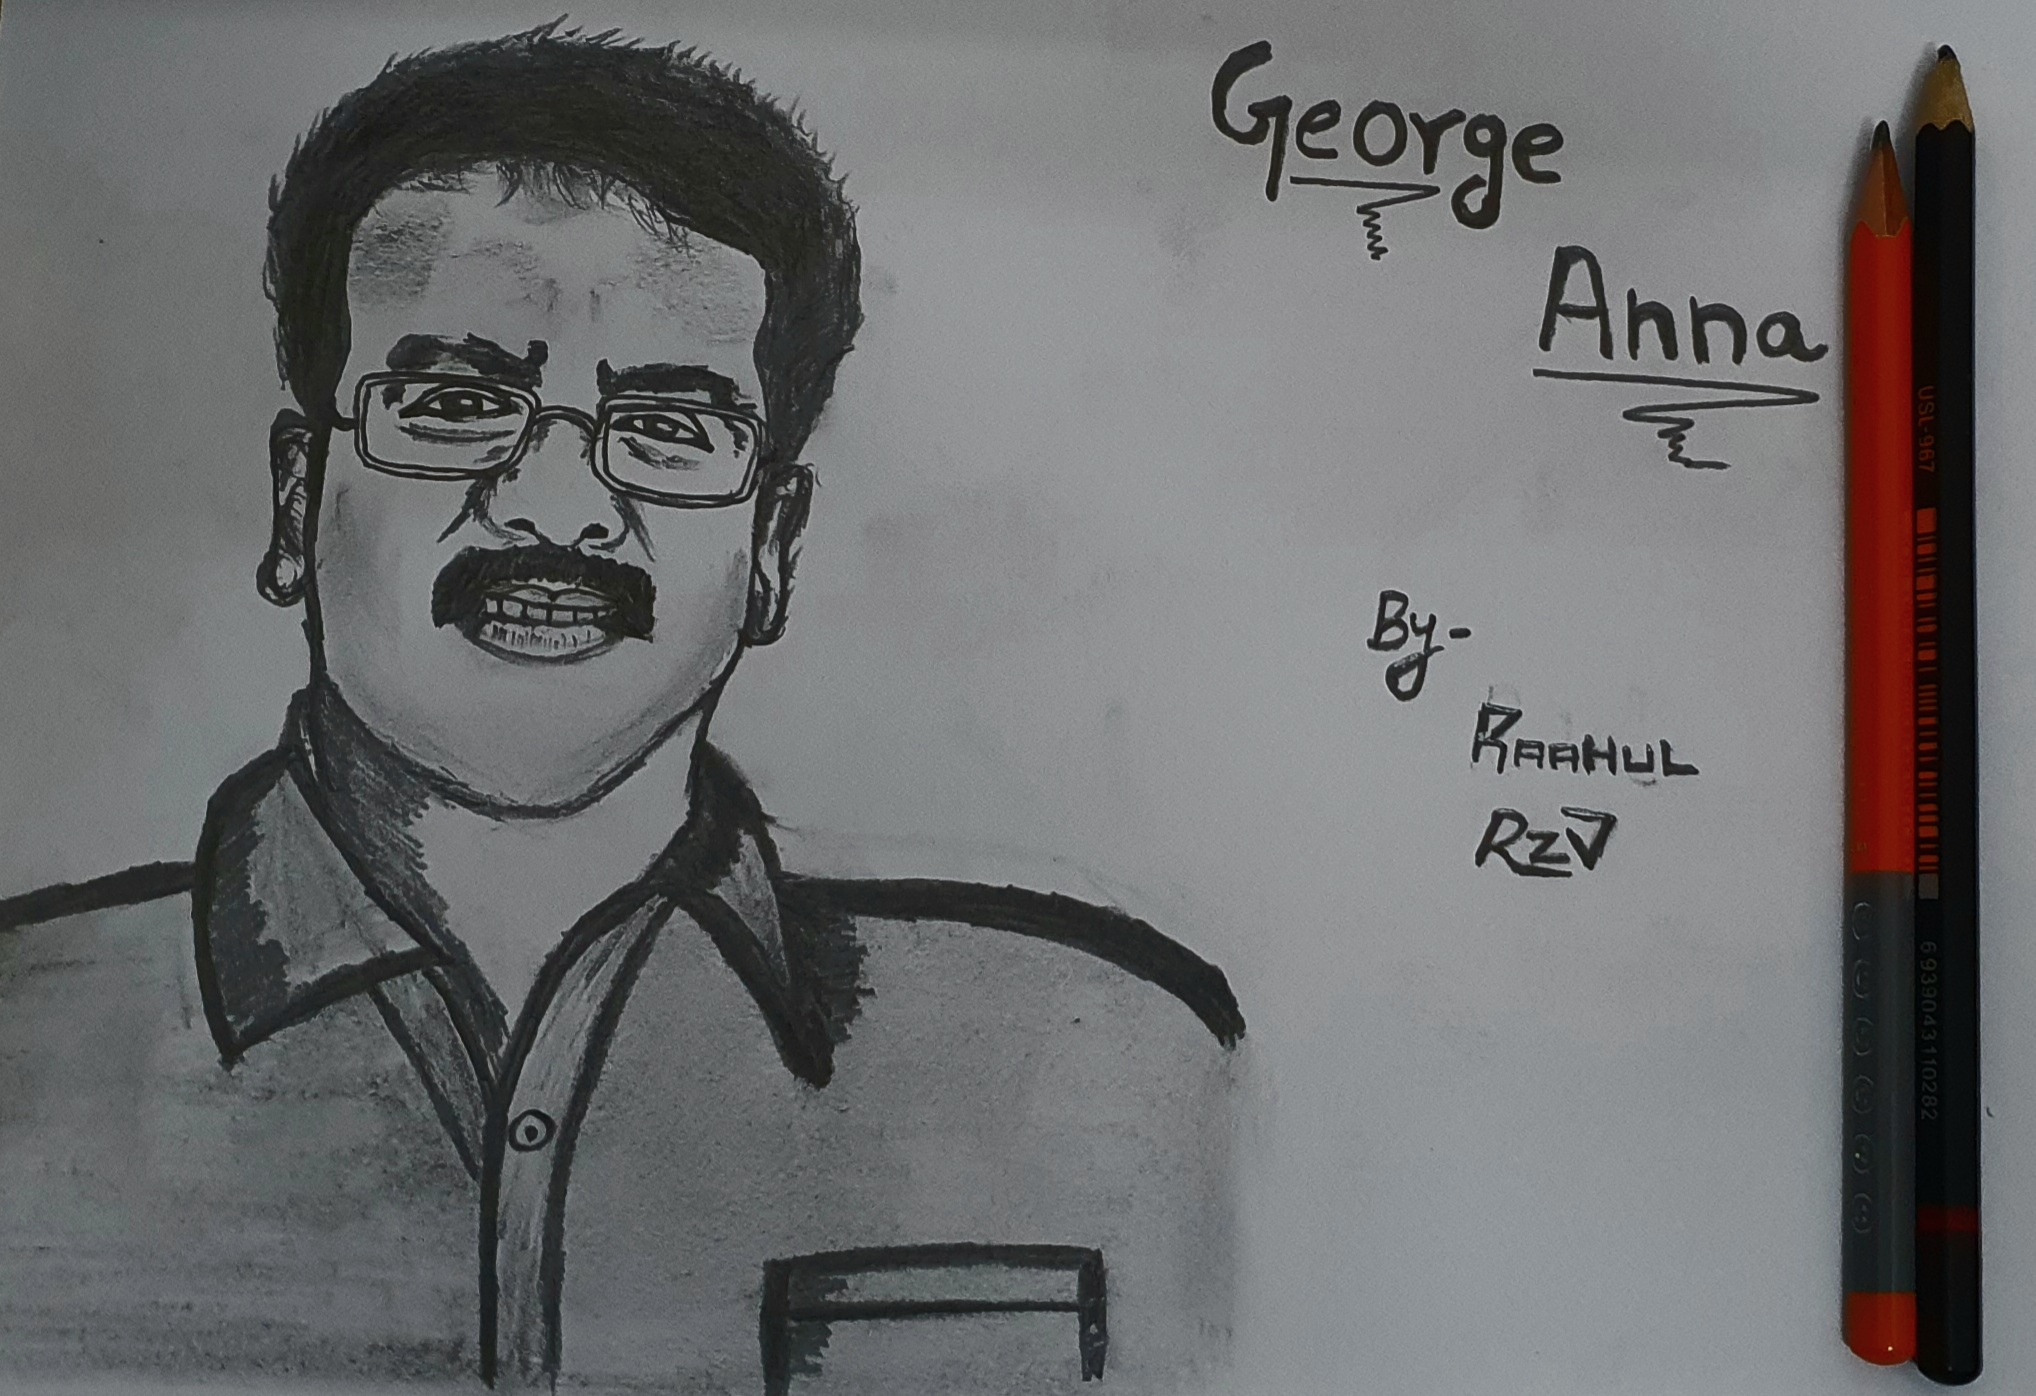 George
Anna
By-
RAAHUL
RZJ
USL-967
6939043110282